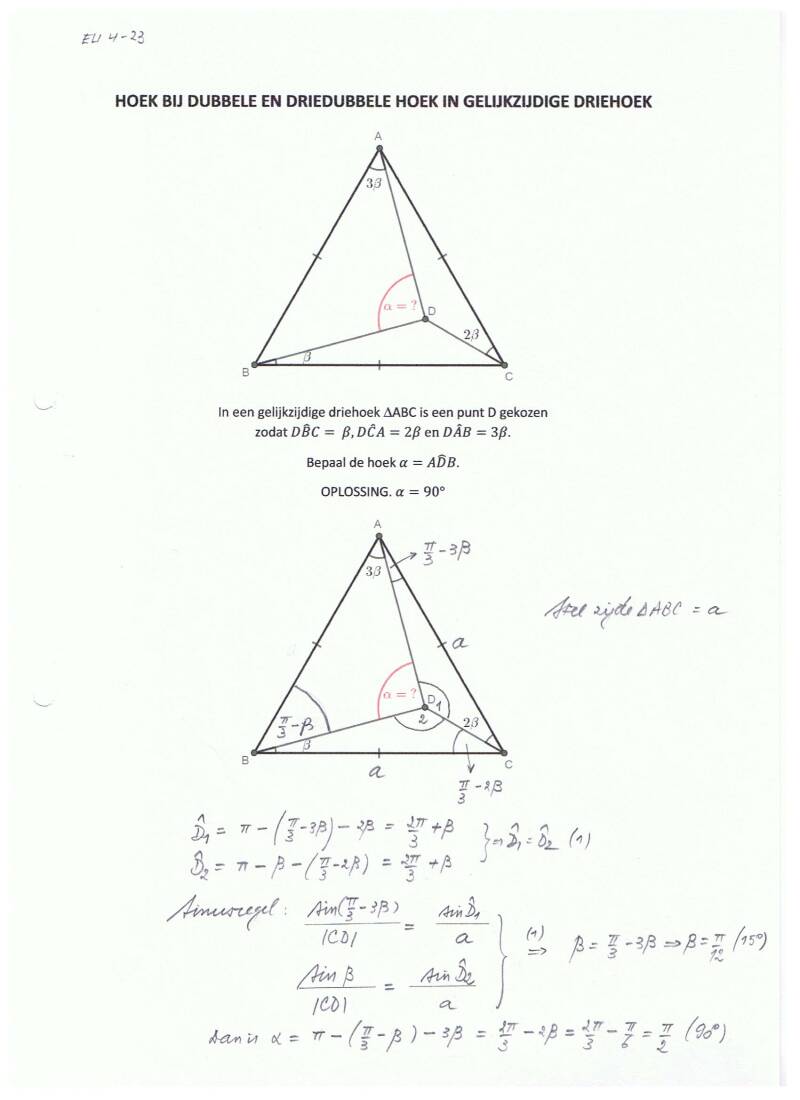 EU 4-23
HOEK BIJ DUBBELE EN DRIEDUBBELE HOEK IN GELIJKZIJDIGE DRIEHOEK
A
3β
α = ?
D
2β
β
B
C
In een gelijkzijdige driehoek ΔABC is een punt D gekozen
zodat DB̂C = β, DĈA = 2β en DÂB = 3β.
Bepaal de hoek α = AD̂B.
OPLOSSING. α = 90°
A
π/3 - 3β
3β
Stel zijde ΔABC = a
a
α = ?
D 1
2
2β
π/3 - β
β
B
C
a
π/3 - 2β
D̂₁ = π - (π/3 - 3β) - 2β = 2π/3 + β
D̂₂ = π - β - (π/3 - 2β) = 2π/3 + β } ⇒ D̂₁ = D̂₂ (1)
Sinusregel: sin(π/3 - 3β)/|CD| = sin D̂₁/a
sin β/|CD| = sin D̂₂/a } (1) ⇒ β = π/3 - 3β ⇒ β = π/12 (15°)
Dan is α = π - (π/3 - β) - 3β = 2π/3 - 2β = 2π/3 - π/6 = π/2 (90°)